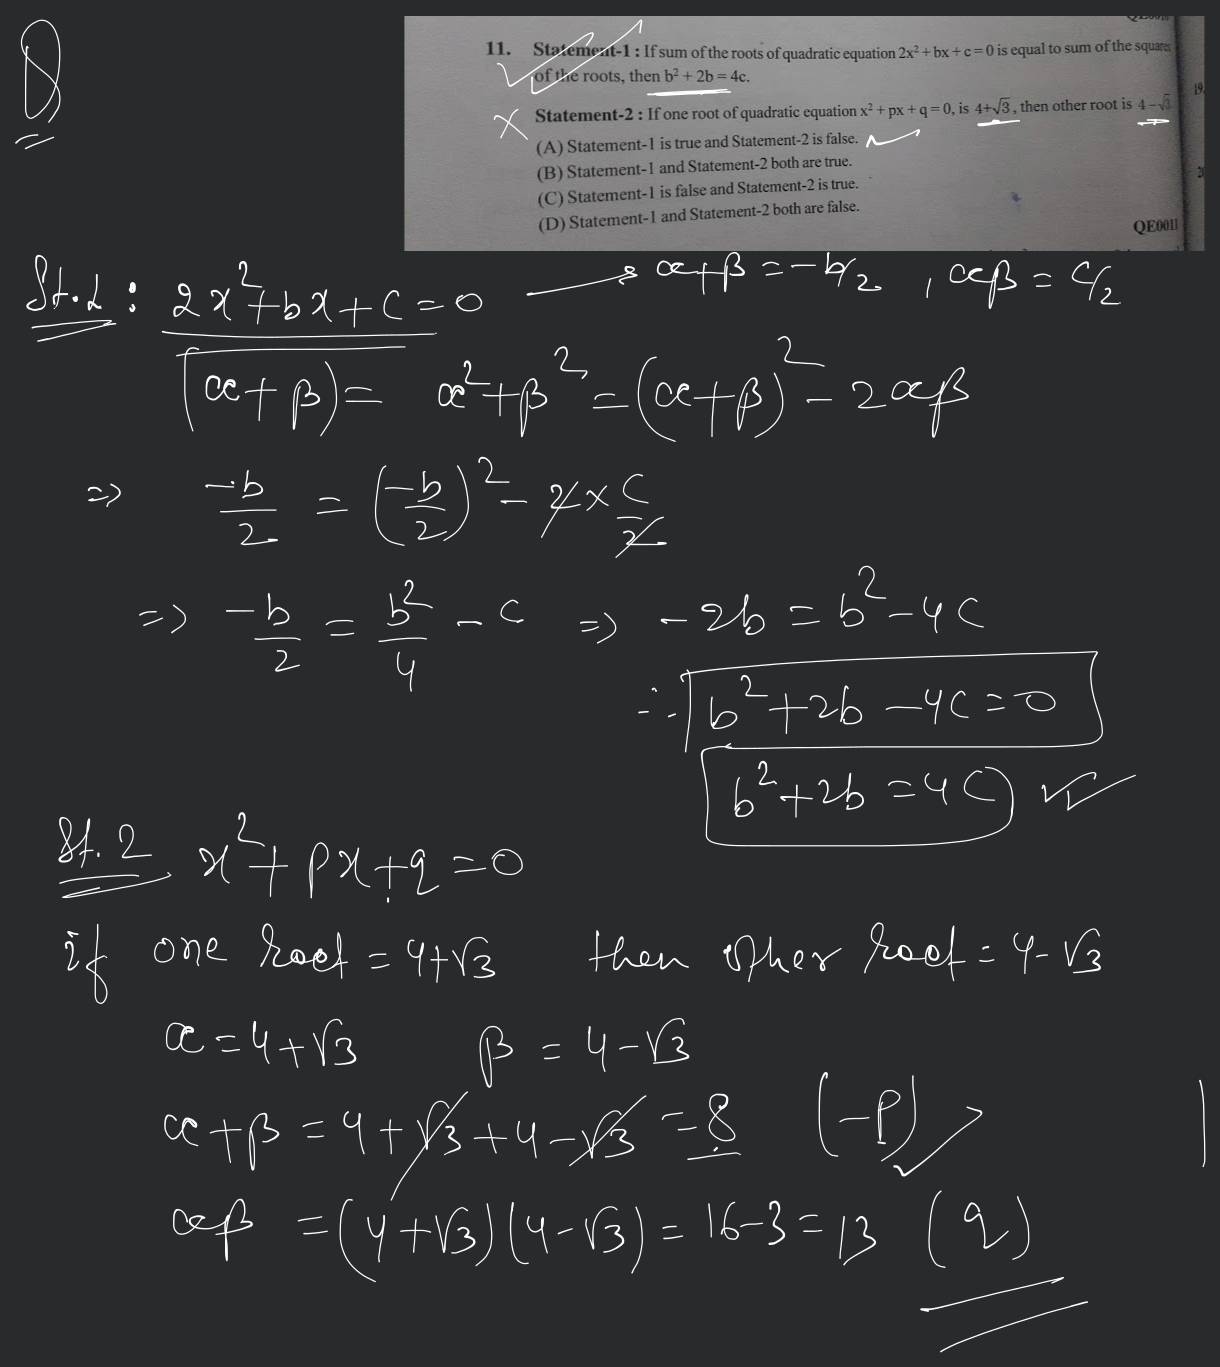 11. Statement-1 : If sum of the roots of quadratic equation 2x² + bx + c = 0 is equal to sum of the squares
of the roots, then b² + 2b = 4c.
Statement-2 : If one root of quadratic equation x² + px + q = 0, is 4+√3, then other root is 4-√3
(A) Statement-1 is true and Statement-2 is false.
(B) Statement-1 and Statement-2 both are true.
(C) Statement-1 is false and Statement-2 is true.
(D) Statement-1 and Statement-2 both are false.
QE0011
St.1 : 2x²+bx+c=0 → α+β = -b/2 , αβ = c/2
(α+β) = α²+β² = (α+β)² - 2αβ
=> -b/2 = (-b/2)² - 2 x c/2
=> -b/2 = b²/4 - c => -2b = b² - 4c
∴ b²+2b-4c=0
b²+2b=4c
St. 2 x²+px+q=0
if one root = 4+√3 then other root = 4-√3
α = 4+√3 β = 4-√3
α+β = 4+√3+4-√3 = 8 (-p)
αβ = (4+√3)(4-√3) = 16-3 = 13 (q)